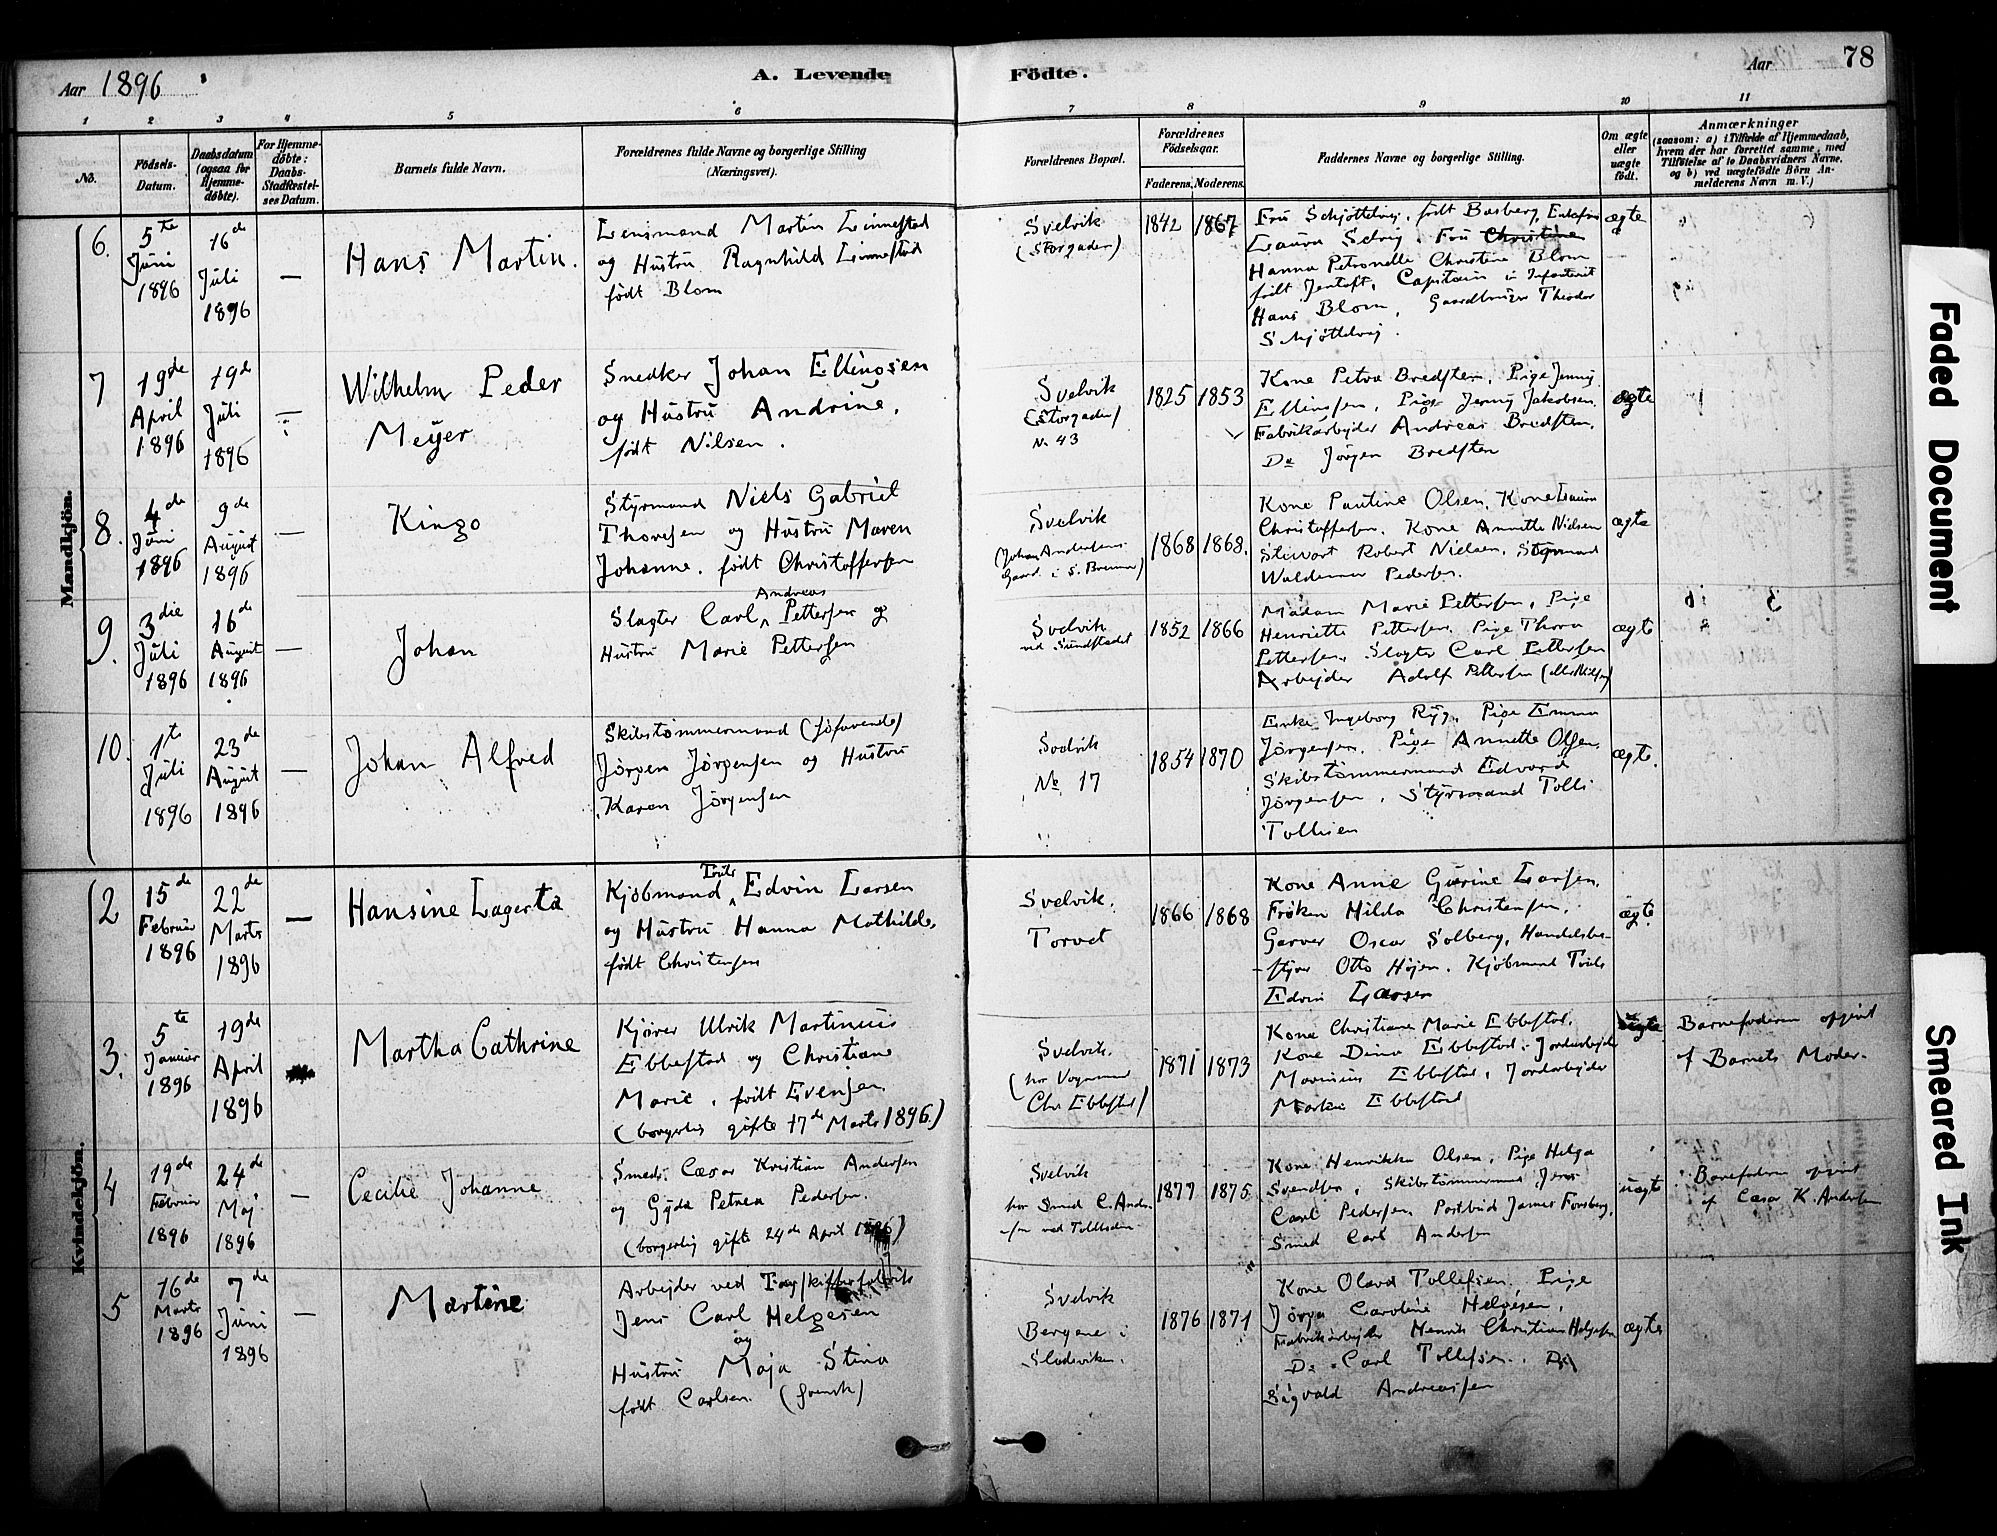 Aar 1896
A. Levende Födte.
Aar
78
1 2 3 4 5 6 7 8 9 10 11
No.
Födsels-Datum.
Daabsdatum (ogsaa for Hjemme-döbte).
For Hjemme-döbte: Daabs-Stadfæstel-ses Datum.
Barnets fulde Navn.
Forældrenes fulde Navne og borgerlige Stilling (Næringsvei).
Forældrenes Bopæl.
Forældrenes Födselsaar.
Faderens. Moderens.
Faddernes Navne og borgerlige Stilling.
Om ægte eller uægte födt.
Anmærkninger
(saasom: a) i Tilfælde af Hjemmedaab,
hvem der har forrettet samme, med
Tilföielse af to Daabsvidners Navne,
og b) ved uægtefödte Börn An-
melderens Navn m. V.)
Mandkjön.
6.
5te Juni 1896
16de Juli 1896
—
Hans Martin.
Lensmand Martin Linnestad
og Hustru Ragnhild Linnestad
født Blom
Svelvik
(Storgaden)
1842 1867
Fru Schjöttelvig, født Basberg, Enkefru
Laura Selvig, Fru Christine
Hanna Petronelle Christine Blom
født Jentoft, Captain i Infanteriet
Hans Blom, Gaardbruger Theodor
Schjöttelvig.
ægte
7
19de April 1896
19de Juli 1896
—
Wilhelm Peder
Meyer
Snedker Johan Ellingsen
og Hustru Andrine,
født Nilsen.
Svelvik
(Storgaden)
No 43
1825 1853
Kone Petra Bredsten, Pige Jenny
Ellingsen, Pige Jenny Jakobsen,
Fabrikarbejder Andreas Bredsten,
Do Jörgen Bredsten
ægte
8.
4de Juni 1896
9de August 1896
—
Kingo
Styrmand Niels Gabriel
Thoresen og Hustru Maren
Johanne, født Christoffersen
Svelvik
(Johan Andersens
Gaard i S. Brenna)
1868 1868.
Kone Pauline Olsen, Kone Laura
Christoffersen, Kone Annette Nielsen
Stewart Robert Nielsen, Styrmand
Waldemar Pedersen.
ægte
9.
3die Juli 1896
16de August 1896
—
Johan
Slagter Carl Andreas Pettersen og
Hustru Marie Pettersen
Svelvik
ved Sundstedet
1852 1866
Madam Marie Pettersen, Pige
Henriette Pettersen, Pige Thora
Pettersen, Slagter Carl Pettersen
Arbejder Adolf Pettersen
ægte
10.
1te Juli 1896
23de August 1896
—
Johan Alfred
Skibstömmermand (søfarende)
Jörgen Jörgensen og Hustru
Karen Jörgensen
Svelvik
No 17
1854 1870
Enke Ingeborg Ryg, Pige Emma
Jörgensen, Pige Annette Olsen,
Skibstömmermand Edvard
Jörgensen, Styrmand Tolli
Tollisen
ægte.
Kvindekjön.
2
15de Februar 1896
22de Marts 1896
—
Hansine Lagerta
Kjöbmand Truls Edvin Larsen
og Hustru Hanna Mathilde,
født Christensen
Svelvik.
Torvet
1866 1868
Kone Anne Gurine Larsen,
Fröken Hilda Christensen,
Garver Oscar Solberg, Handelsbe-
styrer Otto Højen, Kjöbmand Truls
Edvin Larsen
ægte.
3.
5te Januar 1896
19de April 1896
Martha Cathrine
Kjører Ulrik Martinius
Ebbestad og Christiane
Marie, født Evensen
(borgerlig gifte 17de Marts 1896.)
Svelvik.
(hos Vognmand
Chr Ebbestad)
1871 1873
Kone Christiane Marie Ebbestad,
Kone Dina Ebbestad, Jordarbejder
Marinius Ebbestad, Jordarbejder
Martin Ebbestad
uægte
Barnefaderen opgivet
af Barnets Moder.
4
19de Februar 1896
24de Maj 1896
—
Cecilie Johanne
Smed Cæsar Kristian Andersen
og Gyda Petrea Pedersen.
(borgerlig gifte 24de April 1896)
Svelvik
hos Smed C. Ander-
sen ved Toldboden
1877 1875.
Kone Henrikke Olsen, Pige Helga
Svendsen, Skibstömmermand Jens
Carl Pedersen, Postbud James Forsberg,
Smed Carl Andersen
uægte
Barnefaderen opgivet
af Cæsar K. Andersen
5
16de Marts 1896
7de Juni 1896
—
Martine
Arbejder ved Tagskifferfabrik
Jens Carl Helgesen
og
Hustru Maja Stina
født Carlsen. (svensk)
Svelvik
Bergene i
Slodeviken.
1876 1871
Kone Olava Tollefsen, Pige
Jørga Caroline Helgesen,
Fabrikarbejder Henrik Christian Helgesen
Do Carl Tollefsen, Do
Sigvald Andreassen
ægte
Faded Document
Smeared Ink